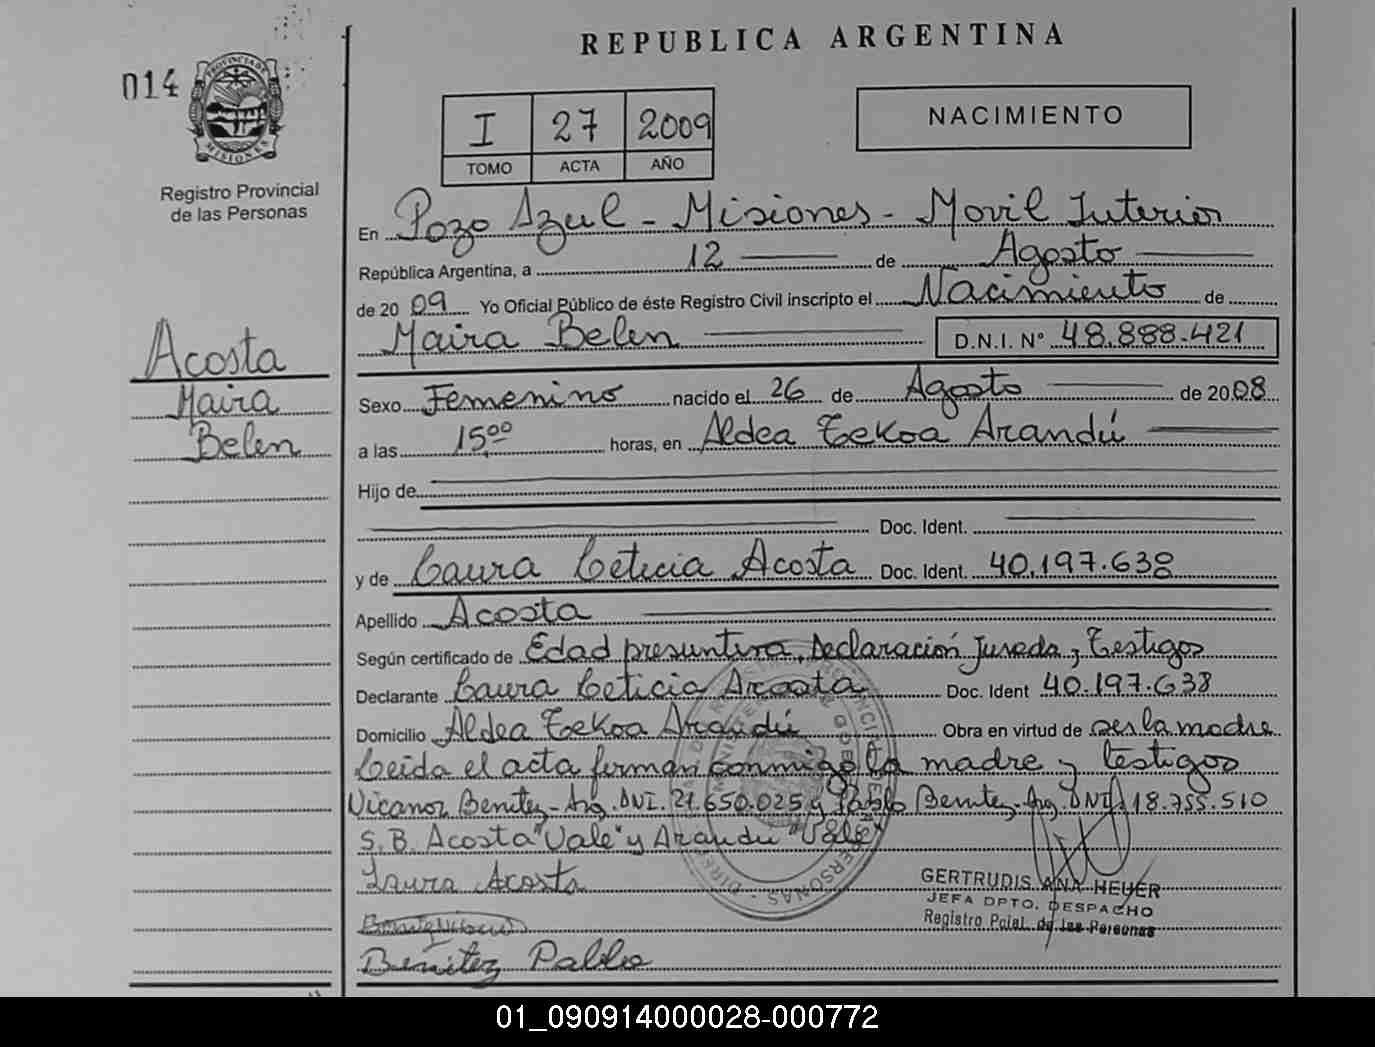 REPUBLICA ARGENTINA
014
PROVINCIA DE MISIONES
Registro Provincial
de las Personas
I 27 2009
TOMO ACTA AÑO
NACIMIENTO
En Pozo Azul - Misiones - Movil Interior
República Argentina, a 12 de Agosto
de 20 09 Yo Oficial Público de éste Registro Civil inscripto el Nacimiento de
Maira Belen D.N.I. N° 48.888.421
Acosta
Maira
Belen
Sexo Femenino nacido el 26 de Agosto de 2008
a las 15,00 horas, en Aldea Tekoa Arandú
Hijo de
Doc. Ident.
y de Laura Leticia Acosta Doc. Ident. 40.197.638
Apellido Acosta
Según certificado de Edad presuntiva, Declaración Jurada y Testigos
Declarante Laura Leticia Acosta Doc. Ident 40.197.638
Domicilio Aldea Tekoa Arandú Obra en virtud de ser la madre
Leida el acta firman conmigo la madre y testigos
Nicanor Benitez - Arg. DNI. 21.650.025 y Pablo Benitez - Arg. DNI. 18.755.510
S. B. Acosta "Vale" y Arandú "Vale"
Laura Acosta
GERTRUDIS ANA HEUER
JEFA DPTO. DESPACHO
Registro Pcial. de las Personas
Benitez Pablo
01_090914000028-000772